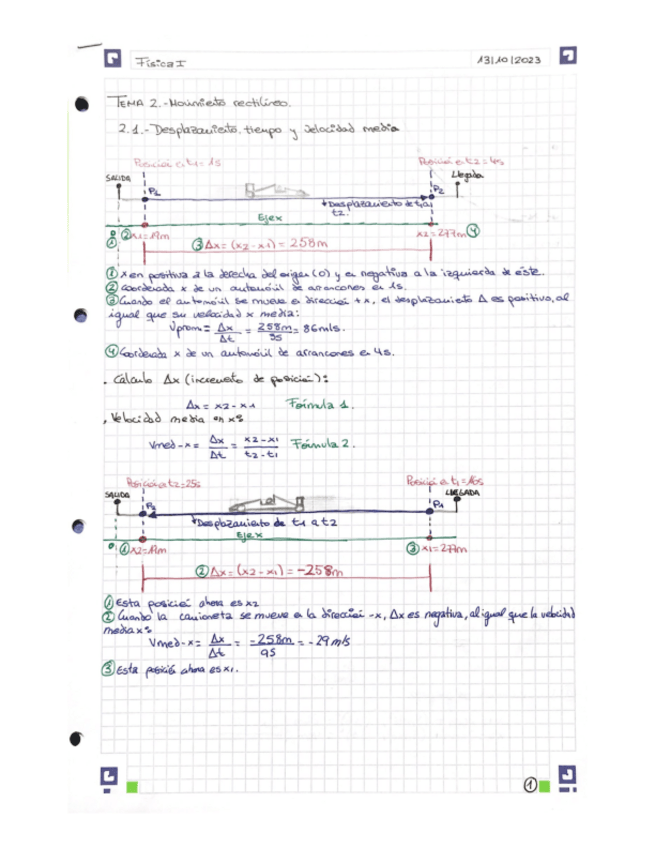 Física I
13|10|2023
TEMA 2.-Movimiento rectilíneo.
2.1.-Desplazamiento, tiempo y velocidad media
Posición en t1=1s
Posición en t2=4s
SALIDA
Llegada
P1
P2
Desplazamiento de t1 a
t2.
Eje x
0
① ② x1=19m
x2=277m ④
③ Δx=(x2-x1)=258m
① x en positiva a la derecha del origen (0) y en negativa a la izquierda de éste.
② Coordenada x de un automóvil de arrancones en 1s.
③ Cuando el automóvil se mueve en dirección +x, el desplazamiento Δ es positivo, al
igual que su velocidad x media:
Vprom = Δx/Δt = 258m/3s = 86m/s.
④ Coordenada x de un automóvil de arrancones en 4s.
. Cálculo Δx (incremento de posición):
Δx = x2-x1 Fórmula 1.
. Velocidad media en x:
Vmed-x = Δx/Δt = x2-x1/t2-t1 Fórmula 2.
Posición en t2=25s
Posición en t1=16s
SALIDA
LLEGADA
P2
P1
Desplazamiento de t1 a t2
Eje x
0
① x2=19m
③ x1=277m
② Δx=(x2-x1)=-258m
① Esta posición ahora es x2
② Cuando la camioneta se mueve en la dirección -x, Δx es negativa, al igual que la velocidad
media x:
Vmed-x = Δx/Δt = -258m/9s = -29m/s
③ Esta posición ahora es x1.
①